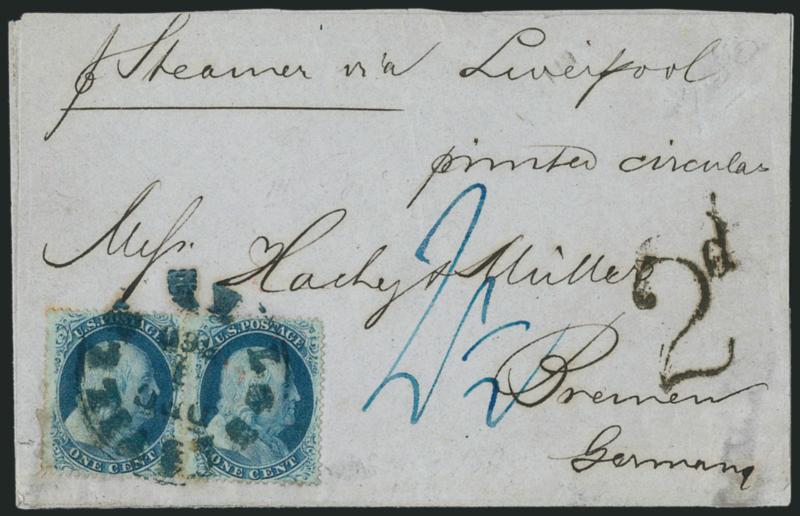 p Steamer via Liverpool
printed circular
Mess. Hachez & Müller
2d
Bremen
Germany
U.S. POSTAGE U.S. POSTAGE
ONE CENT ONE CENT